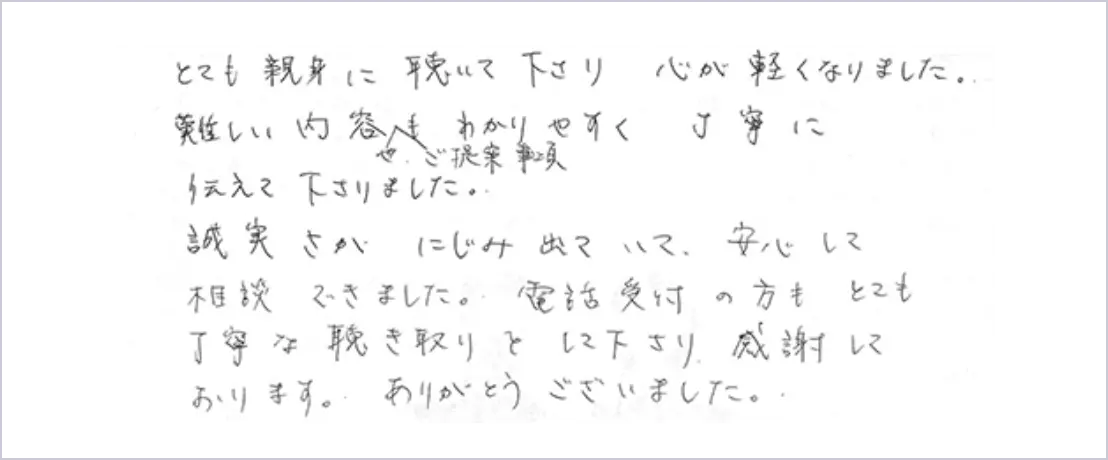 とても親身に聴いて下さり 心が軽くなりました。
難しい内容も わかりやすく 丁寧に
や、ご提案事項
伝えて下さりました。
誠実さが にじみ出ていて、安心して
相談できました。電話受付の方も とても
丁寧な聴き取りをして下さり、感謝して
おります。ありがとうございました。